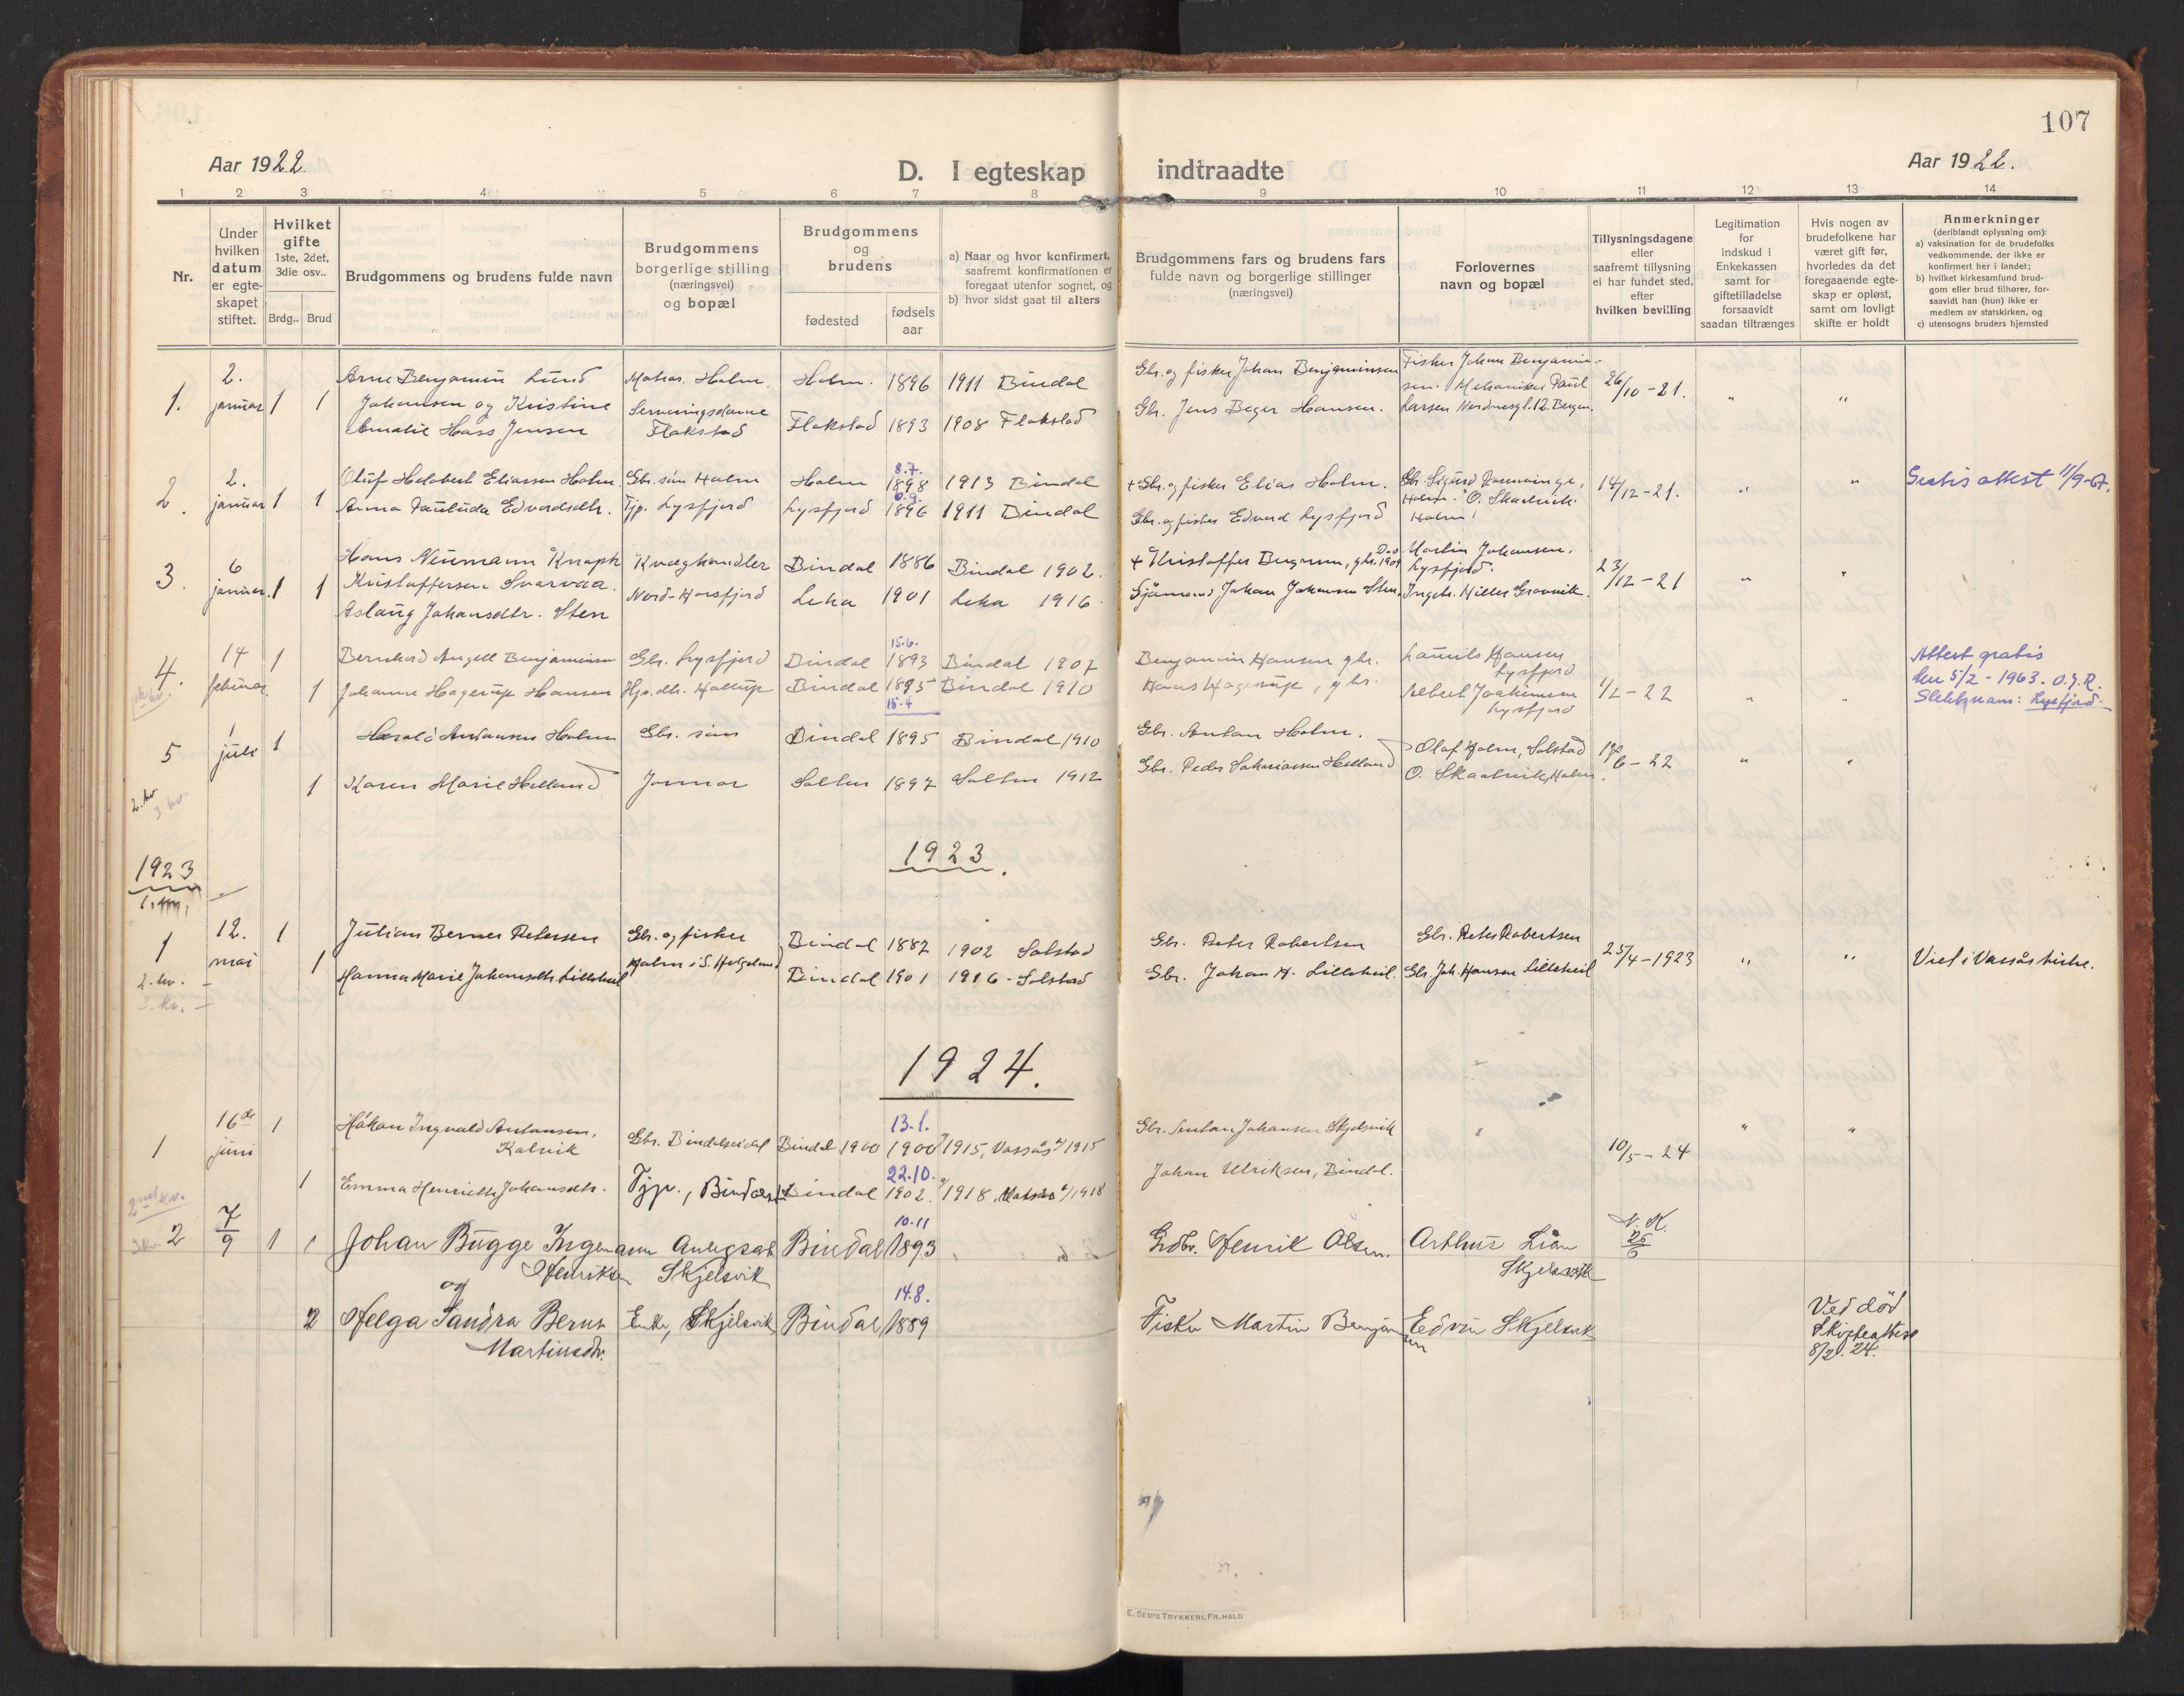 107
Aar 1922
D. I egteskap indtraadte
Aar 1922.
1 2 3 4 5 6 7 8 9 10 11 12 13 14
Nr.
Under hvilken datum er egteskapet stiftet.
Hvilket gifte 1ste, 2det, 3die osv..
Brdg.. Brud
Brudgommens og brudens fulde navn
Brudgommens borgerlige stilling (næringsvei) og bopæl
Brudgommens og brudens
fødested
fødsels aar
a) Naar og hvor konfirmert, saafremt konfirmationen er foregaat utenfor sognet, og
b) hvor sidst gaat til alters
Brudgommens fars og brudens fars fulde navn og borgerlige stillinger (næringsvei)
Forlovernes navn og bopæl
Tillysningsdagene eller saafremt tillysning ei har fundet sted, efter hvilken bevilling
Legitimation for indskud i Enkekassen samt for giftetilladelse forsaavidt saadan tiltrænges
Hvis nogen av brudefolkene har været gift før, hvorledes da det foregaaende egteskap er opløst, samt om lovligt skifte er holdt
Anmerkninger (deriblandt oplysning om):
a) vaksination for de brudefolks vedkommende, der ikke er konfirmert her i landet;
b) hvilket kirkesamfund brudgom eller brud tilhører, forsaavidt han (hun) ikke er medlem av statskirken, og
c) utensogns bruders hjemsted
1. 2. januar 1 1
Arne Benjamin Lund Johansen og Kristine Amalie Hass Jensen
Matros. Holm.
Serveringsdame Flakstad
Holm. 1896 1911 Bindal
Flakstad 1893 1908 Flakstad
Gbr. og fisker Johan Benjaminsen
Gbr. Jens Beger Hansen.
Fisker Johan Benjaminsen. Mekaniker Paul Larsen Nordnesgt. 12. Bergen.
26/10-21. " "
2. 2. januar 1 1
Oluf Helbert Eliassen Holm.
Anna Pauluda Edvardsdtr.
Gbr. søn Holm
Tjp. Lysfjord
Holm 8.7. 1898 1913 Bindal
Lysfjord 6.9. 1896 1911 Bindal
+ Gbr. og fisker Elias Holm.
Gbr. og fisker Edvard Lysfjord
Gbr. Sigurd
Holm. O. Skaalvik Holm!
14/12-21. " "
Gratis attest 11/9-67.
3. 6 januar. 1 1
Hans Neumann Knoph
Kristoffersen Svarvaa.
Aslaug Johansdtr. Sten
Kvæghandler
Nord-Horsfjord
Bindal 1886 Bindal 1902.
Leka 1901 Leka 1916.
+ Kristoffer
Sjømand Johan Johansen Sten.
Martin Johansen. Lysfjord.
Ingebr. Hiller Gravvik.
23/12-21 " "
4. 14 februar. 1 1
Bernhard Angell Benjaminsen
Johanna Hagerup Hansen
Gbr. Lysfjord
Gbr. dtr. Hottup
Bindal 15.6. 1893 Bindal 1907
Bindal 1895 Bindal 1910
15.4
Benjamin Hansen gbr.
Hans Hagerup, gbr.
Laurits Hansen Lysfjord
Albert Joakimsen Lysfjord
1/2-22 " "
Attest gratis
den 5/2-1963. O.J.R.
Slektsnavn: Lysfjord.
5 1 juli 1 1
Harald Antonsen Holm
Karen Marie Helland
Gbr. søn
Jonmor
Bindal 1895 Bindal 1910
Solhem 1897 1912
Gbr. Anton Holm.
Gbr. Peder Sakariassen Helland
Olaf Holm, Solstad
O. Skaalvik, Holm.
/6-22 " "
2. kv
3. kv
1923
1923.
1 12. mai 1 1
Julian Berner Petersen
Hanna Marie Johansdtr. Lilleheil
Gbr. og fisker
Holm i S. Helgeland
Bindal 1887 1902 Solstad
Bindal 1901 1916 - Solstad
Gbr. Peter Robertsen
Gbr. Johan H. Lilleheil.
Gbr. Peter Robertsen
Gbr. Joh. Hansen Lilleheil
25/4-1923 " "
Viet i Vassås kirke.
2. kv. -
3. kv. -
1924.
1 16de juni 1 1
Håkon Ingvald Antonsen. Kalvik
Emma Henriette Johansdtr.
Gbr. Bindalseidet
Tjp., Bindalseidet
Bindal 1900 13.1. 1900 1915, Vassås 1915
Bindal 22.10. 1902. 1918, 1918
Gbr. Anton Johansen Skjelsvik
Johan Ulriksen, Bindal.
10/5-24 " "
2 7/9 1 1
Johan Bugge Ingemann Henriksen
og
2 Helga Sandra Bernt Martinsdtr.
Anlegsarb Skjelsvik
Enke, Skjelsvik
Bindal 10.11 1893
Bindal 14.8. 1889
Grdbr. Henrik Olsen.
Fisker Martin Benjaminsen
Arthur Lian Skjelsvik
Edvin Skjelsvik
N. K. 26/6
Ved død
Skifteattest
8/2. 24.
E. SEM'S TRYKKERI, FR.HALD